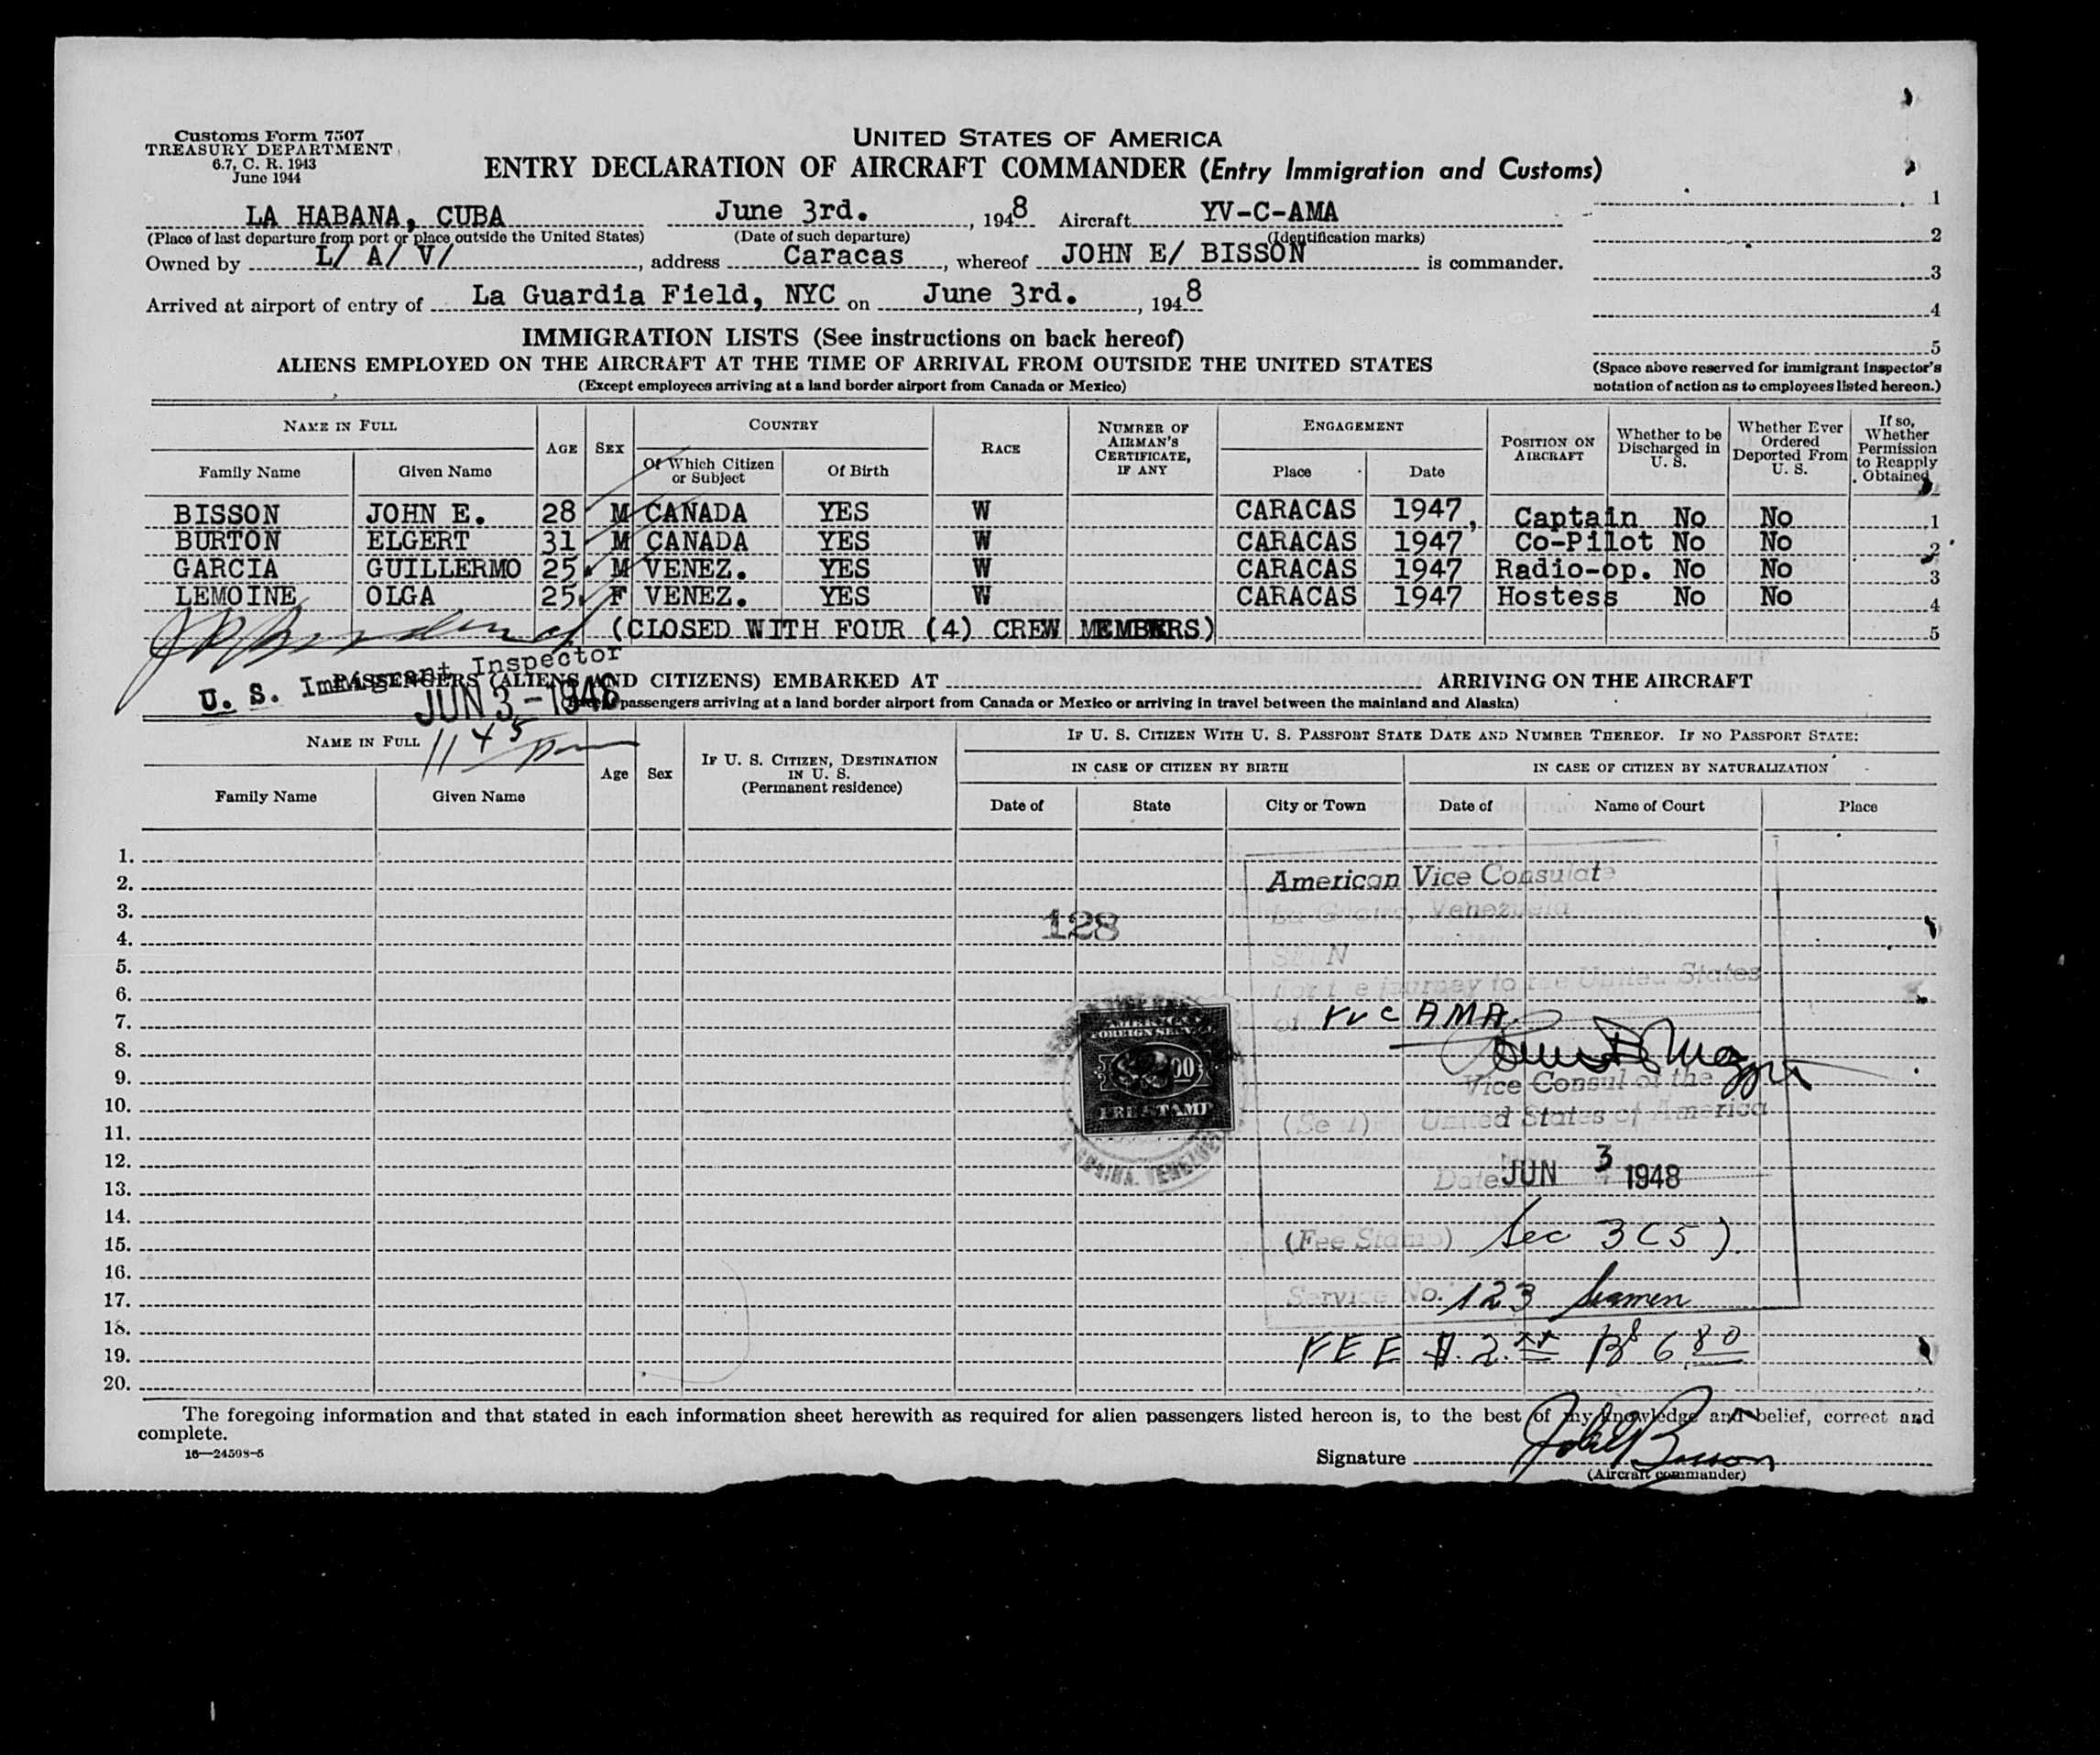 Customs Form 7507
TREASURY DEPARTMENT
6.7, C. R. 1943
June 1944
UNITED STATES OF AMERICA
ENTRY DECLARATION OF AIRCRAFT COMMANDER (Entry Immigration and Customs)
LA HABANA, CUBA June 3rd. , 1948 Aircraft YV-C-AMA
(Place of last departure from port or place outside the United States) (Date of such departure) (Identification marks)
Owned by L/ A/ V/ , address Caracas , whereof JOHN E/ BISSON is commander.
Arrived at airport of entry of La Guardia Field, NYC on June 3rd. , 1948
1
2
3
4
5
(Space above reserved for immigrant inspector's
notation of action as to employees listed hereon.)
IMMIGRATION LISTS (See instructions on back hereof)
ALIENS EMPLOYED ON THE AIRCRAFT AT THE TIME OF ARRIVAL FROM OUTSIDE THE UNITED STATES
(Except employees arriving at a land border airport from Canada or Mexico)
NAME IN FULL AGE SEX COUNTRY RACE NUMBER OF AIRMAN'S CERTIFICATE, IF ANY ENGAGEMENT POSITION ON AIRCRAFT Whether to be Discharged in U. S. Whether Ever Ordered Deported From U. S. If so, Whether Permission to Reapply Obtained
Family Name Given Name Of Which Citizen or Subject Of Birth Place Date
BISSON JOHN E. 28 M CANADA YES W CARACAS 1947, Captain No No 1
BURTON ELGERT 31 M CANADA YES W CARACAS 1947' Co-Pilot No No 2
GARCIA GUILLERMO 25 M VENEZ. YES W CARACAS 1947 Radio-op. No No 3
LEMOINE OLGA 25 F VENEZ. YES W CARACAS 1947 Hostess No No 4
(CLOSED WITH FOUR (4) CREW MEMBERS) 5
U. S. Immigrant Inspector
JUN 3-1948
11 45 pm
PASSENGERS (ALIENS AND CITIZENS) EMBARKED AT ARRIVING ON THE AIRCRAFT
passengers arriving at a land border airport from Canada or Mexico or arriving in travel between the mainland and Alaska)
NAME IN FULL Age Sex IF U. S. CITIZEN, DESTINATION IN U. S. (Permanent residence) IF U. S. CITIZEN WITH U. S. PASSPORT STATE DATE AND NUMBER THEREOF. IF NO PASSPORT STATE:
IN CASE OF CITIZEN BY BIRTH IN CASE OF CITIZEN BY NATURALIZATION
Family Name Given Name Date of State City or Town Date of Name of Court Place
1.
2.
3.
4.
5.
6.
7.
8.
9.
10.
11.
12.
13.
14.
15.
16.
17.
18.
19.
20.
128
American Vice Consulate
La Guaira, Venezuela
SEEN
journey to the United States
YVC AMA
Vice Consul of the
United States of America
(Seal)
Date JUN 3 1948
(Fee Stamp) Sec 3(5).
Service No. 123 Seamen
FEE $ 2. Bs 6.80
AMERICAN
FOREIGN SERVICE
00
FEE STAMP
The foregoing information and that stated in each information sheet herewith as required for alien passengers listed hereon is, to the best of my knowledge and belief, correct and
complete.
16—24598-5
Signature John E Bisson
(Aircraft commander)